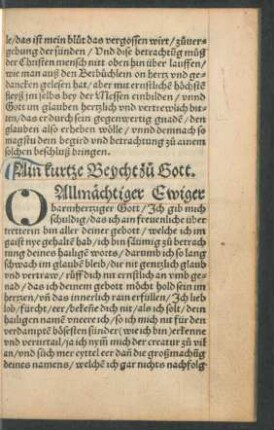 le/das ist mein blůt das vergossen wirt/zůuer-
gebung der sünden/Vnd dise betrachtüg můß
der Christen mensch nitt oben hin über lauffen/
wie man auß den Betbüchlen on hertz vnd ge-
dancken gelesen hat/aber mit ernstliche höchste
fleyß im selbs bey der Messen einbilden/vnnd
Gott im glauben hertzlich vnd vertrewlich bit-
ten/das er durch sein gegenwertig gnade/den
glauben also erheben wölle/vnnd demnach so
magstu dein begird vnd betrachtung zu ainem
solchen beschluß bringen.
Ain kurtze Beycht zů Gott.
O Allmächtiger Ewiger
barmhertziger Gott/Ich gib mich
schuldig/das ich ain freuenliche über
tretterin bin aller deiner gebott/welche ich im
gaist nye gehalte hab/ich bin säumig zů betrach
tung deines hailige worts/darumb ich so lang
schwach im glaube bleib/dar mit gentzlich glaub
vnd vertraw/rüff dich mit ernstlich an vmb ge-
nad/das ich deinem gebott möcht hold sein im
hertzen/vñ das innerlich rain erfüllen/Ich lieb
lob/fürcht/eer/bekeñe dich nit/als ich solt/dein
hailigen name vneere ich/so ich mich nit für den
verdampte bösesten sünder (wie ich bin) erkenne
vnd verurtail/ja ich nym mich der creatur zů vil
an/vnd sůch mer eyttel eer dañ die großmachüg
deines namens/welche ich gar nichts nachfolg